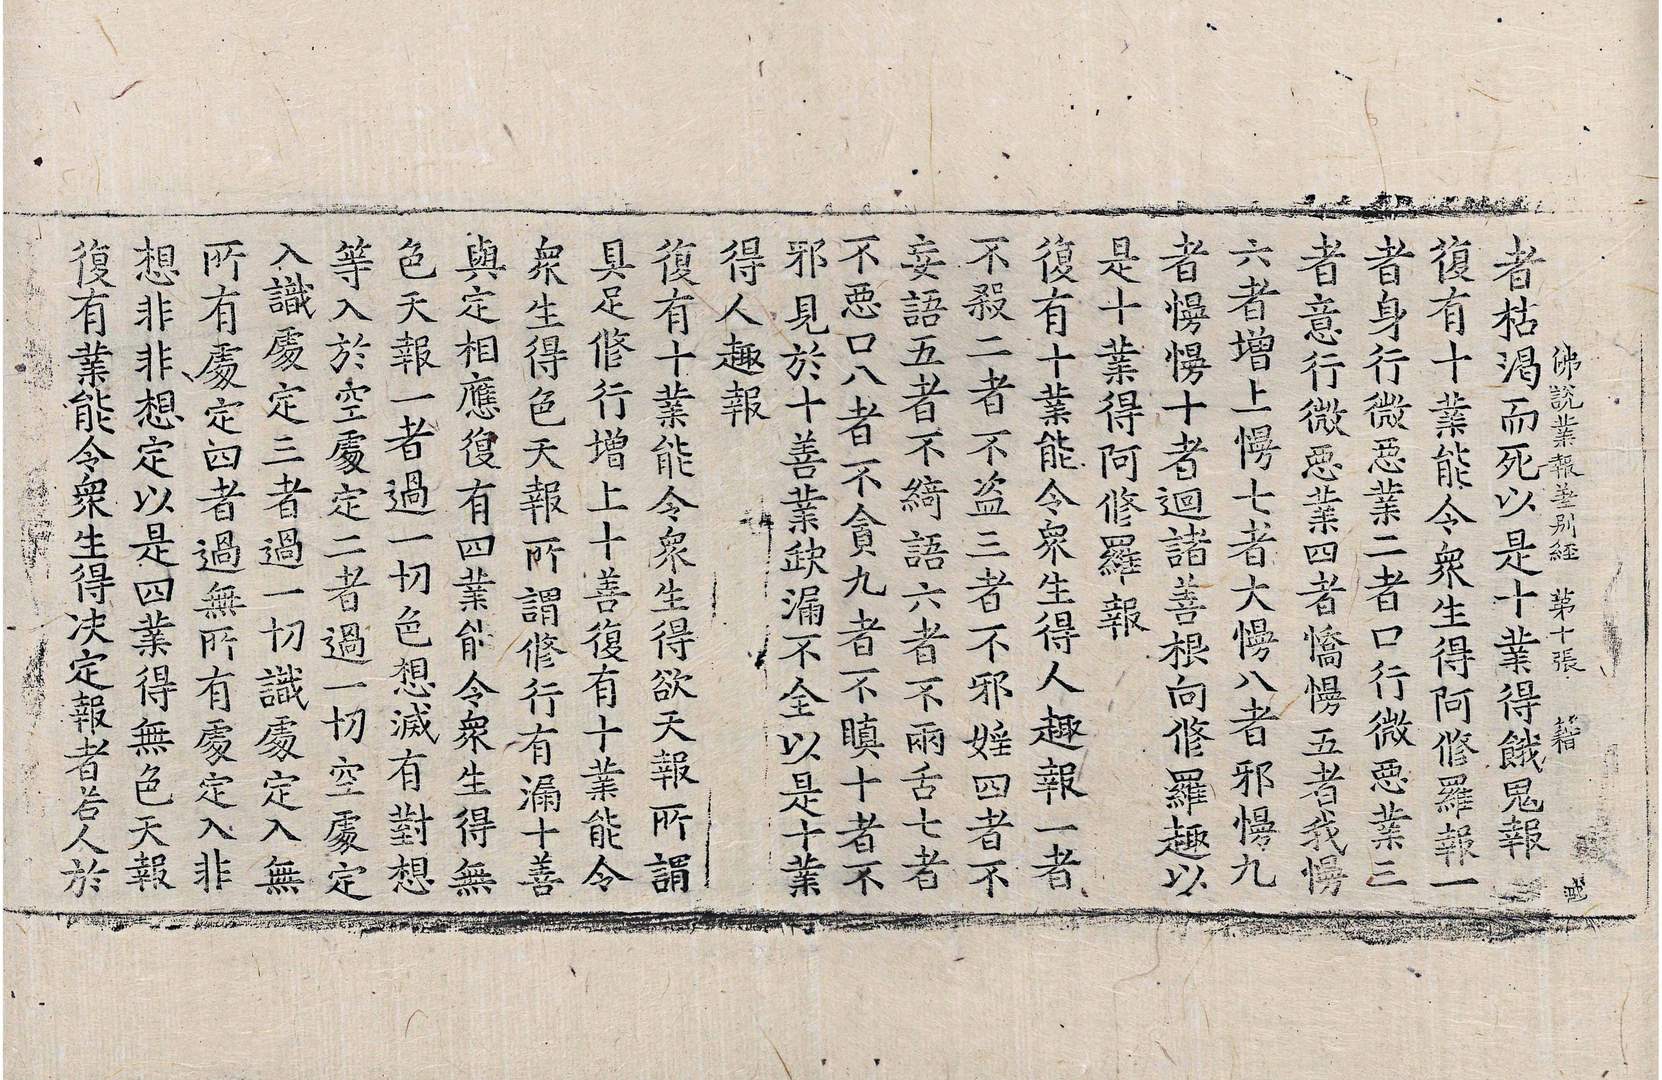 佛說業報差別經 第十張 籍
者枯渴而死以是十業得餓鬼報
復有十業能令衆生得阿修羅報一
者身行微惡業二者口行微惡業三
者意行微惡業四者憍慢五者我慢
六者增上慢七者大慢八者邪慢九
者慢慢十者迴諸善根向修羅趣以
是十業得阿修羅報
復有十業能令衆生得人趣報一者
不殺二者不盗三者不邪婬四者不
妄語五者不綺語六者不兩舌七者
不惡口八者不貪九者不瞋十者不
邪見於十善業缺漏不全以是十業
得人趣報
復有十業能令衆生得欲天報所謂
具足修行增上十善復有十業能令
衆生得色天報所謂修行有漏十善
與定相應復有四業能令衆生得無
色天報一者過一切色想滅有對想
等入於空處定二者過一切空處定
入識處定三者過一切識處定入無
所有處定四者過無所有處定入非
想非非想定以是四業得無色天報
復有業能令衆生得决定報者若人於